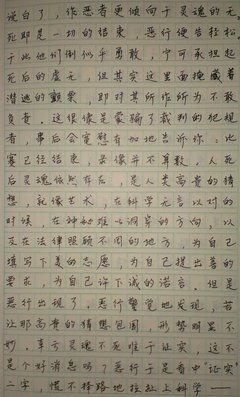 说白了，作恶者更倾向于灵魂的无，
死即是一切的结束，恶行便告轻松。
于此他们倒似乎勇敢，宁可承担起
死后的虚无，但其实这里面掩藏着
潜逃的颤栗，即对其所作所为不敢
负责。这很像是蒙骗了裁判的犯规
者，事后会宽慰有加地告诉你：比
赛已经结束，录像并不算数。人死
后灵魂依然存在，是人类高贵的猜
想，就像艺术，在科学无言以对的
时候，在神秘难以洞穿的方向，以
及在法律照顾不周的地方，为自己
填写下美的志愿，为自己提出善的
要求，为自己许下诚的诺言。但是
恶行出现了，恶行警觉地发现，若
让那高贵的猜想包围，形势明显不
妙。幸亏灵魂不死难于证实，这不
是个好消息吗？恶行于是看中“证实”
二字，慌不择路地拉扯上科学——